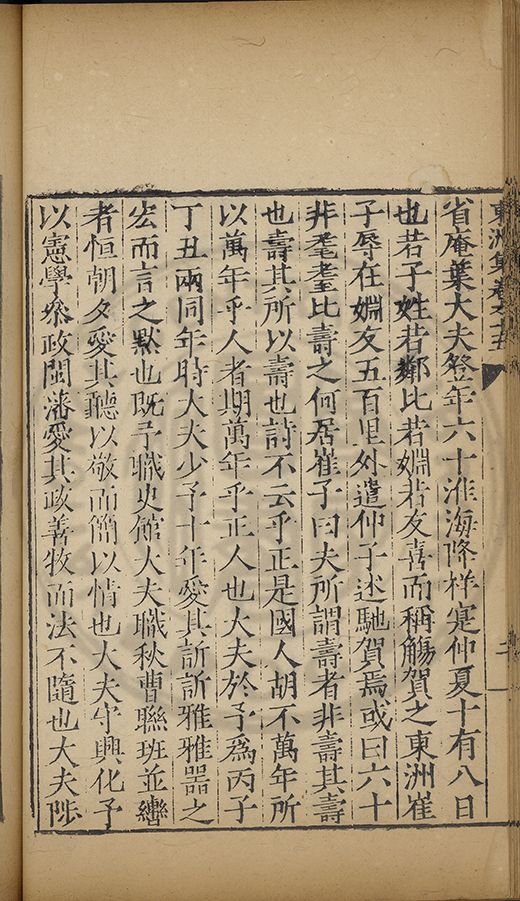 東洲集卷之十五
省庵葉大夫登年六十淮海降祥寔仲夏十有八日
也若子姓若鄰比若姻若友喜而稱觴賀之東洲崔
子辱在姻友五百里外遣仲子述馳賀焉或曰六十
非耄耋比壽之何居崔子曰夫所謂壽者非壽其壽
也壽其所以壽也詩不云乎正是國人胡不萬年所
以萬年乎人者期萬年乎正人也大夫於予爲丙子
丁丑兩同年時大夫少予十年愛其訢訢雅雅器之
宏而言之默也既予職史館大夫職秋曹聯班並轡
者恒朝夕愛其聽以敬而簡以情也大夫守興化予
以憲學叅政閩藩愛其政善牧而法不隨也大夫陟